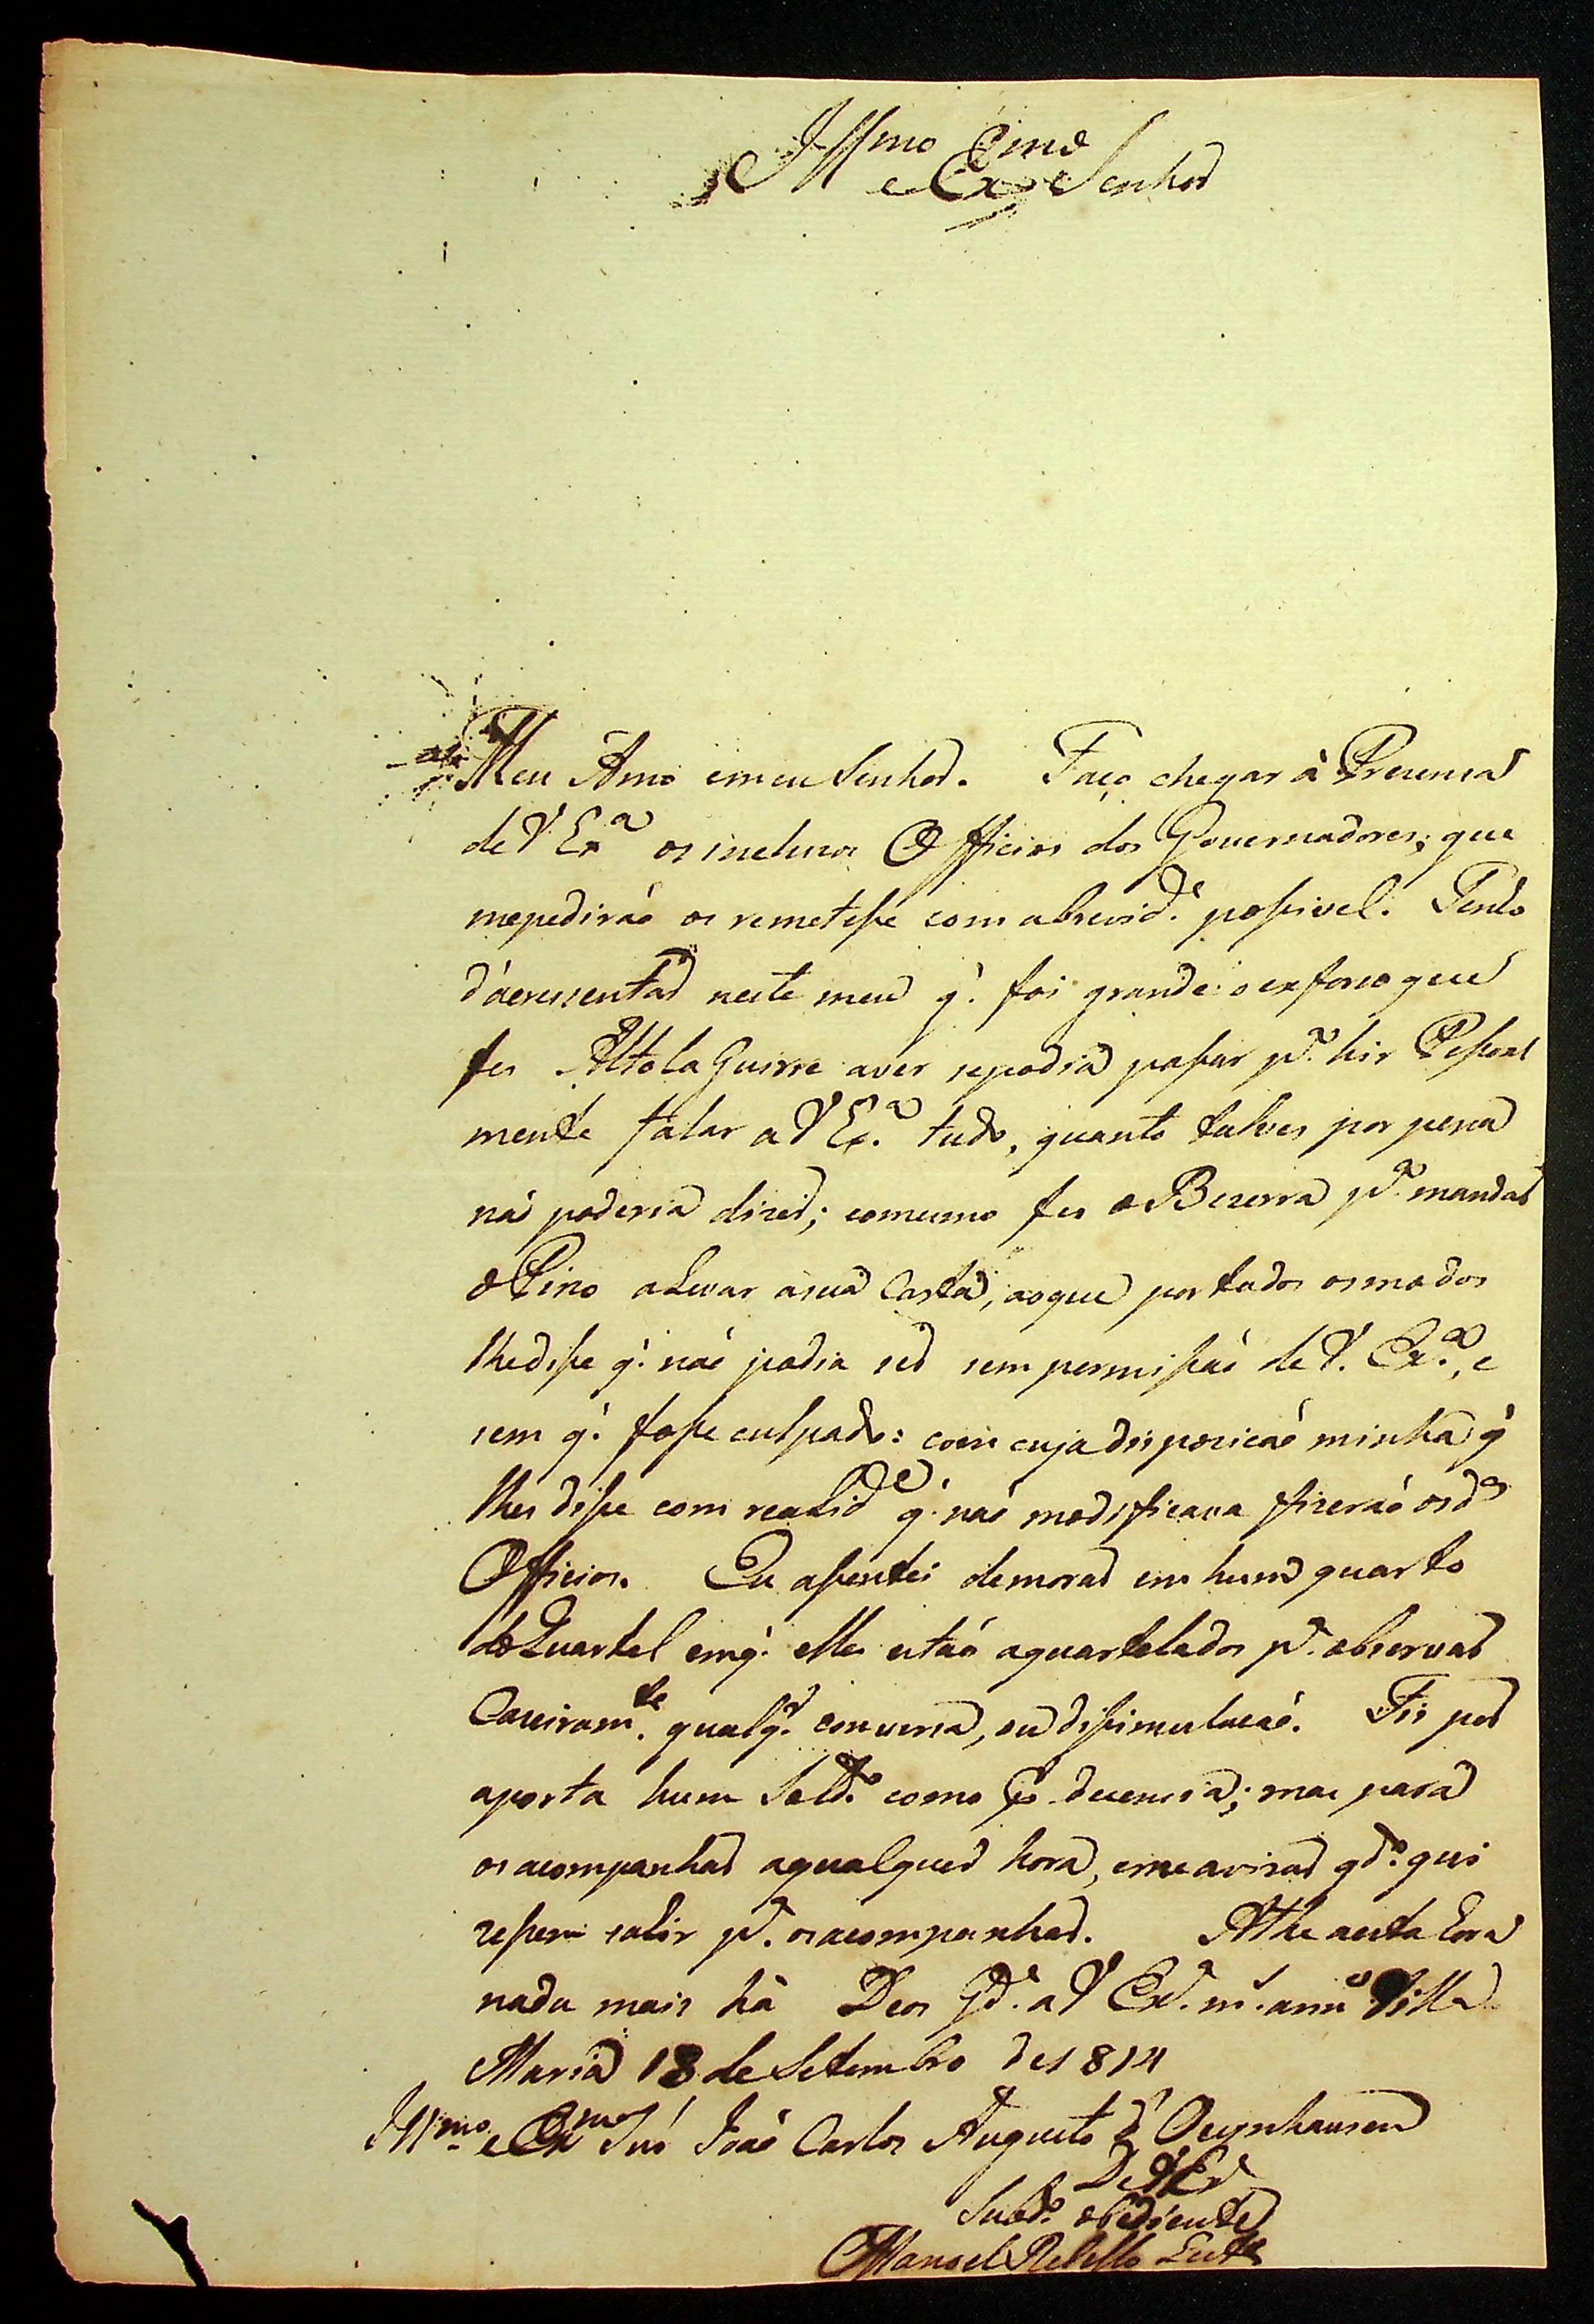 Illmo e Exmo Senhor
Meu Amo emeu Senhor. Faço chegar á Prezença
de V Exa os incluzos Officios dos Governadores, que
mepediráo os remetesse com abrevide. possivel. Tenho
d'acressentar neste meu q' foi grande o exforço que
fes Altolaguirre aver sepodia passar pa. hir Pessoal
mente falar a V Exa. tudo, quanto talves por pena
náo poderia dizer; comesmo fes o Bezerra pa. mandar
o Pino aLevar asua Carta, aoque por todos osmodos
lhedisse q' náo podia ser sem permissáo de V. Exa., e
sem q' fosse culpado: com cuja dispozicáo minha q'
lhes disse com realide q' náo modificava fizeráo osds
Officios. Eu assentei demorar em hum quarto
doQuartel emq' elles estáo aquartelados pa. observar
Cazeiramte. qualqr. conversa, ou dissimulacáo. Fis por
aporta hum Soldo. como pr. decencia; mas para
osacompanhar aqualquer hora, emeavisar qdo. qui
zessem sahir pa. osacompanhar. Athe aesta hora
nada mais há Deos Gde. a V Exa. ms. anns Villa
Maria 18 de Setembro de 1814
Illmo. e Exmo Snr Joáo Carlos Augusto d' Oeynhausen
De V Exa
Subdo. obediente
Manoel Rebello Leite